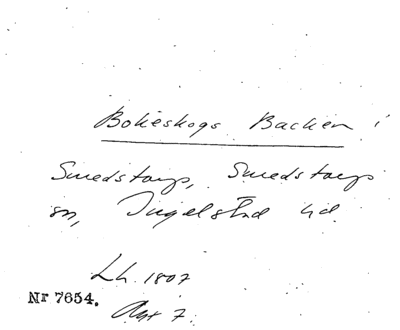 Bokeskogs Backen
Smedstorp, Smedstorps
sn, Ingelstad hd.
Lh. 1807
Nr 7654.
Akt 7.